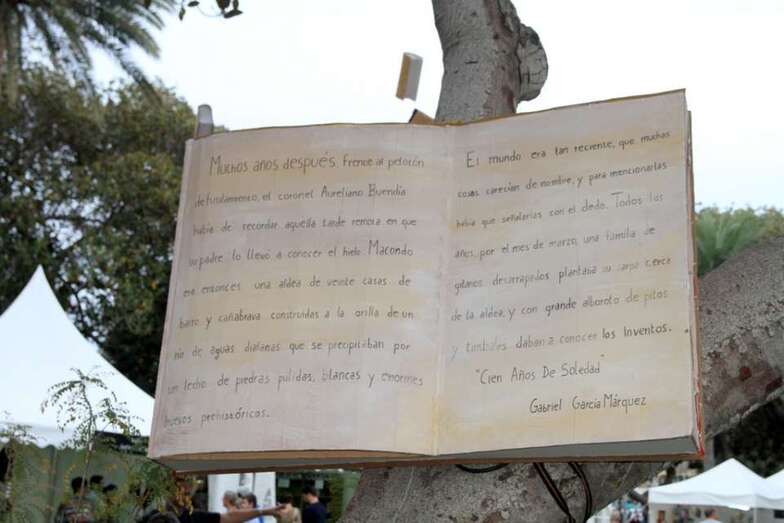 Muchos años después, frente al pelotón
de fusilamiento, el coronel Aureliano Buendía
había de recordar aquella tarde remota en que
su padre lo llevó a conocer el hielo. Macondo
era entonces una aldea de veinte casas de
barro y cañabrava construidas a la orilla de un
río de aguas diáfanas que se precipitaban por
un lecho de piedras pulidas, blancas y enormes
huevos prehistóricos.
El mundo era tan reciente, que muchas
cosas carecían de nombre, y para mencionarlas
había que señalarlas con el dedo. Todos los
años, por el mes de marzo, una familia de
gitanos desarrapados plantaba su carpa cerca
de la aldea, y con grande alboroto de pitos
y timbales daban a conocer los inventos.
"Cien Años De Soledad"
Gabriel García Márquez